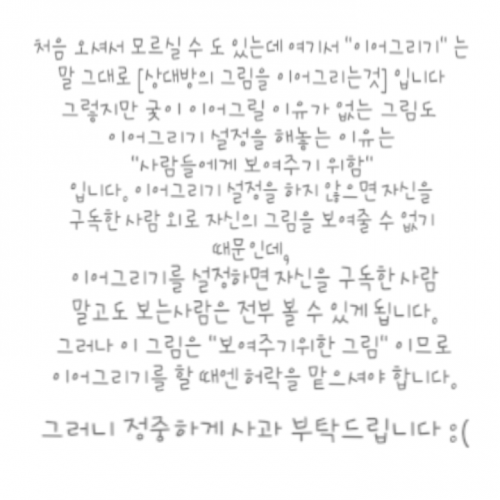 처음 오셔서 모르실 수 도 있는데 여기서 "이어그리기" 는
말 그대로 [상대방의 그림을 이어그리는것] 입니다
그렇지만 궂이 이어그릴 이유가 없는 그림도
이어그리기 설정을 해놓는 이유는
"사람들에게 보여주기 위함"
입니다. 이어그리기 설정을 하지 않으면 자신을
구독한 사람 외로 자신의 그림을 보여줄 수 없기
때문인데,
이어그리기를 설정하면 자신을 구독한 사람
말고도 보는사람은 전부 볼 수 있게 됩니다.
그러나 이 그림은 "보여주기위한 그림" 이므로
이어그리기를 할 때엔 허락을 맡으셔야 합니다.
그러니 정중하게 사과 부탁드립니다 :(